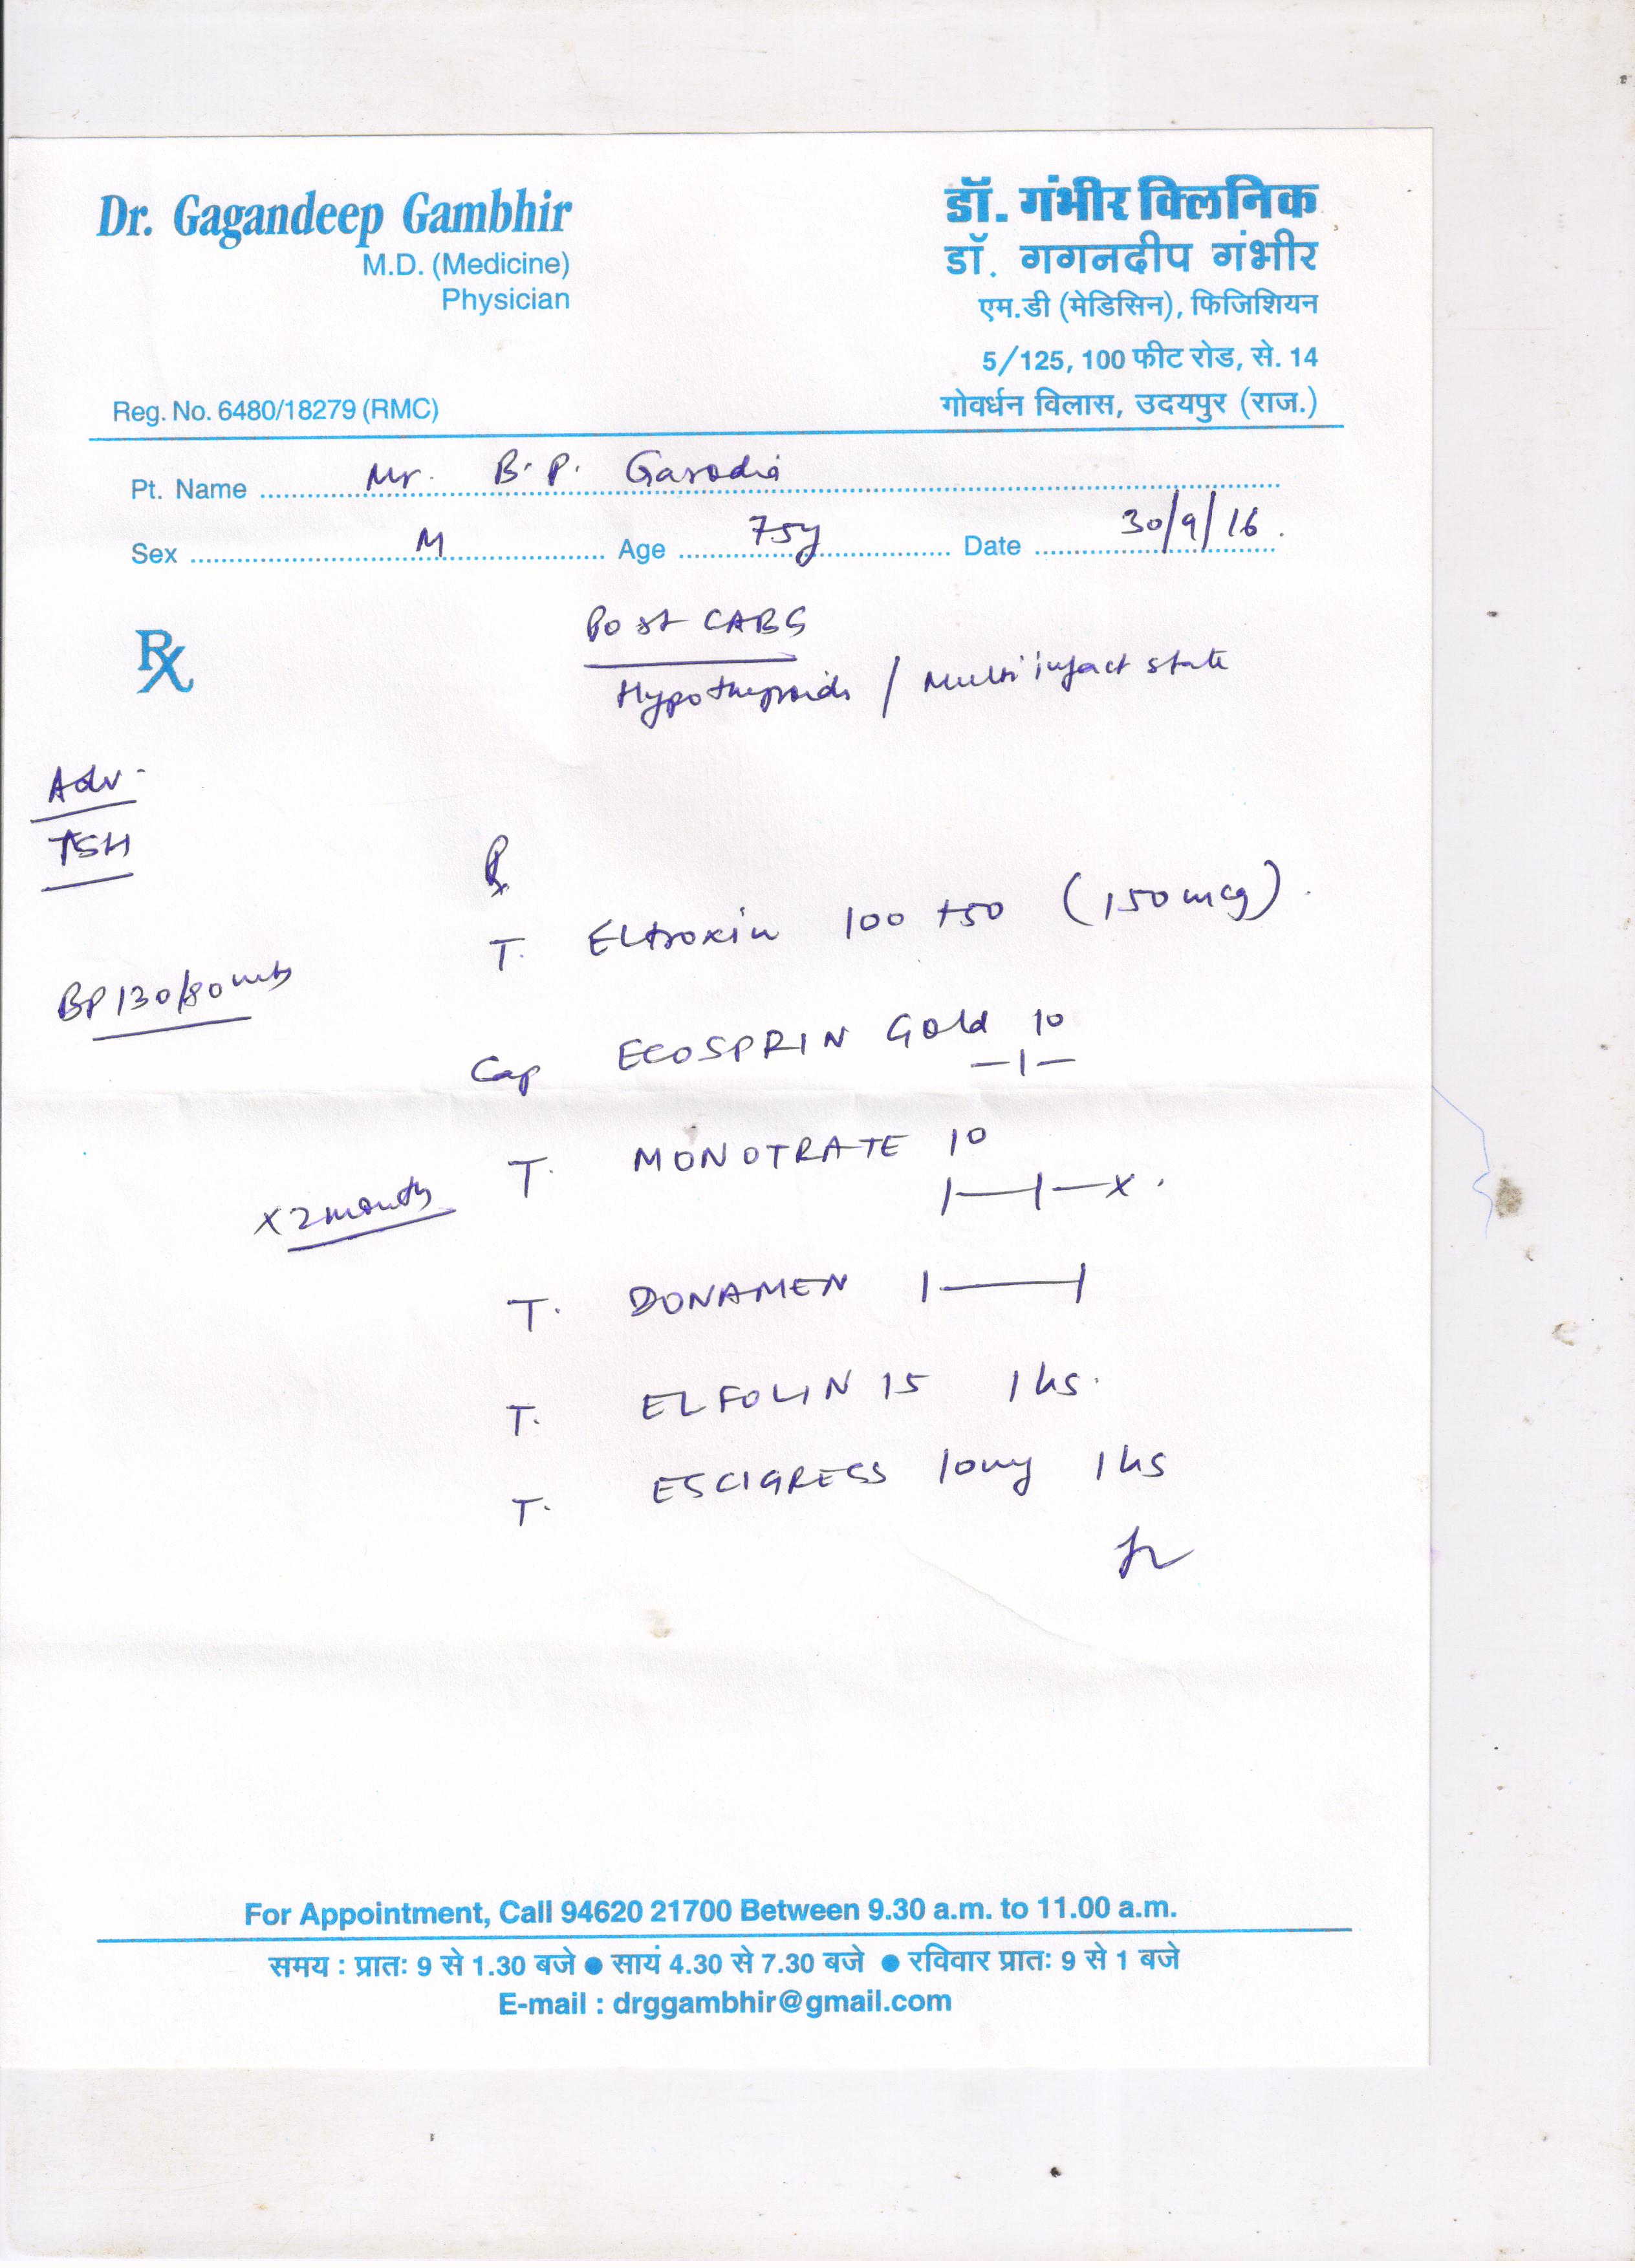 Dr. Gagandeep Gambhir
M.D. (Medicine)
Physician
Reg. No. 6480/18279 (RMC)
डॉ. गंभीर क्लिनिक
डॉ. गगनदीप गंभीर
एम.डी (मेडिसिन), फिजिशियन
5/125, 100 फीट रोड, से. 14
गोवर्धन विलास, उदयपुर (राज.)
Pt. Name Mr. B. P. Garodia
Sex M Age 75y Date 30/9/16.
Rx
Post CABG
Hypothyroids / Multi infact state
Adv.
TSH
Rx
T. Eltroxin 100 +50 (150 mcg).
BP 130/80
Cap ECOSPRIN Gold 10
—|—
T. MONOTRATE 10
|—|—x.
x 2 months
T. DONAMEN |——|
T. ELFOLIN 15 1 hs.
T. ESCIGRESS 10mg 1 hs
For Appointment, Call 94620 21700 Between 9.30 a.m. to 11.00 a.m.
समय : प्रातः 9 से 1.30 बजे ● सायं 4.30 से 7.30 बजे ● रविवार प्रातः 9 से 1 बजे
E-mail : drggambhir@gmail.com